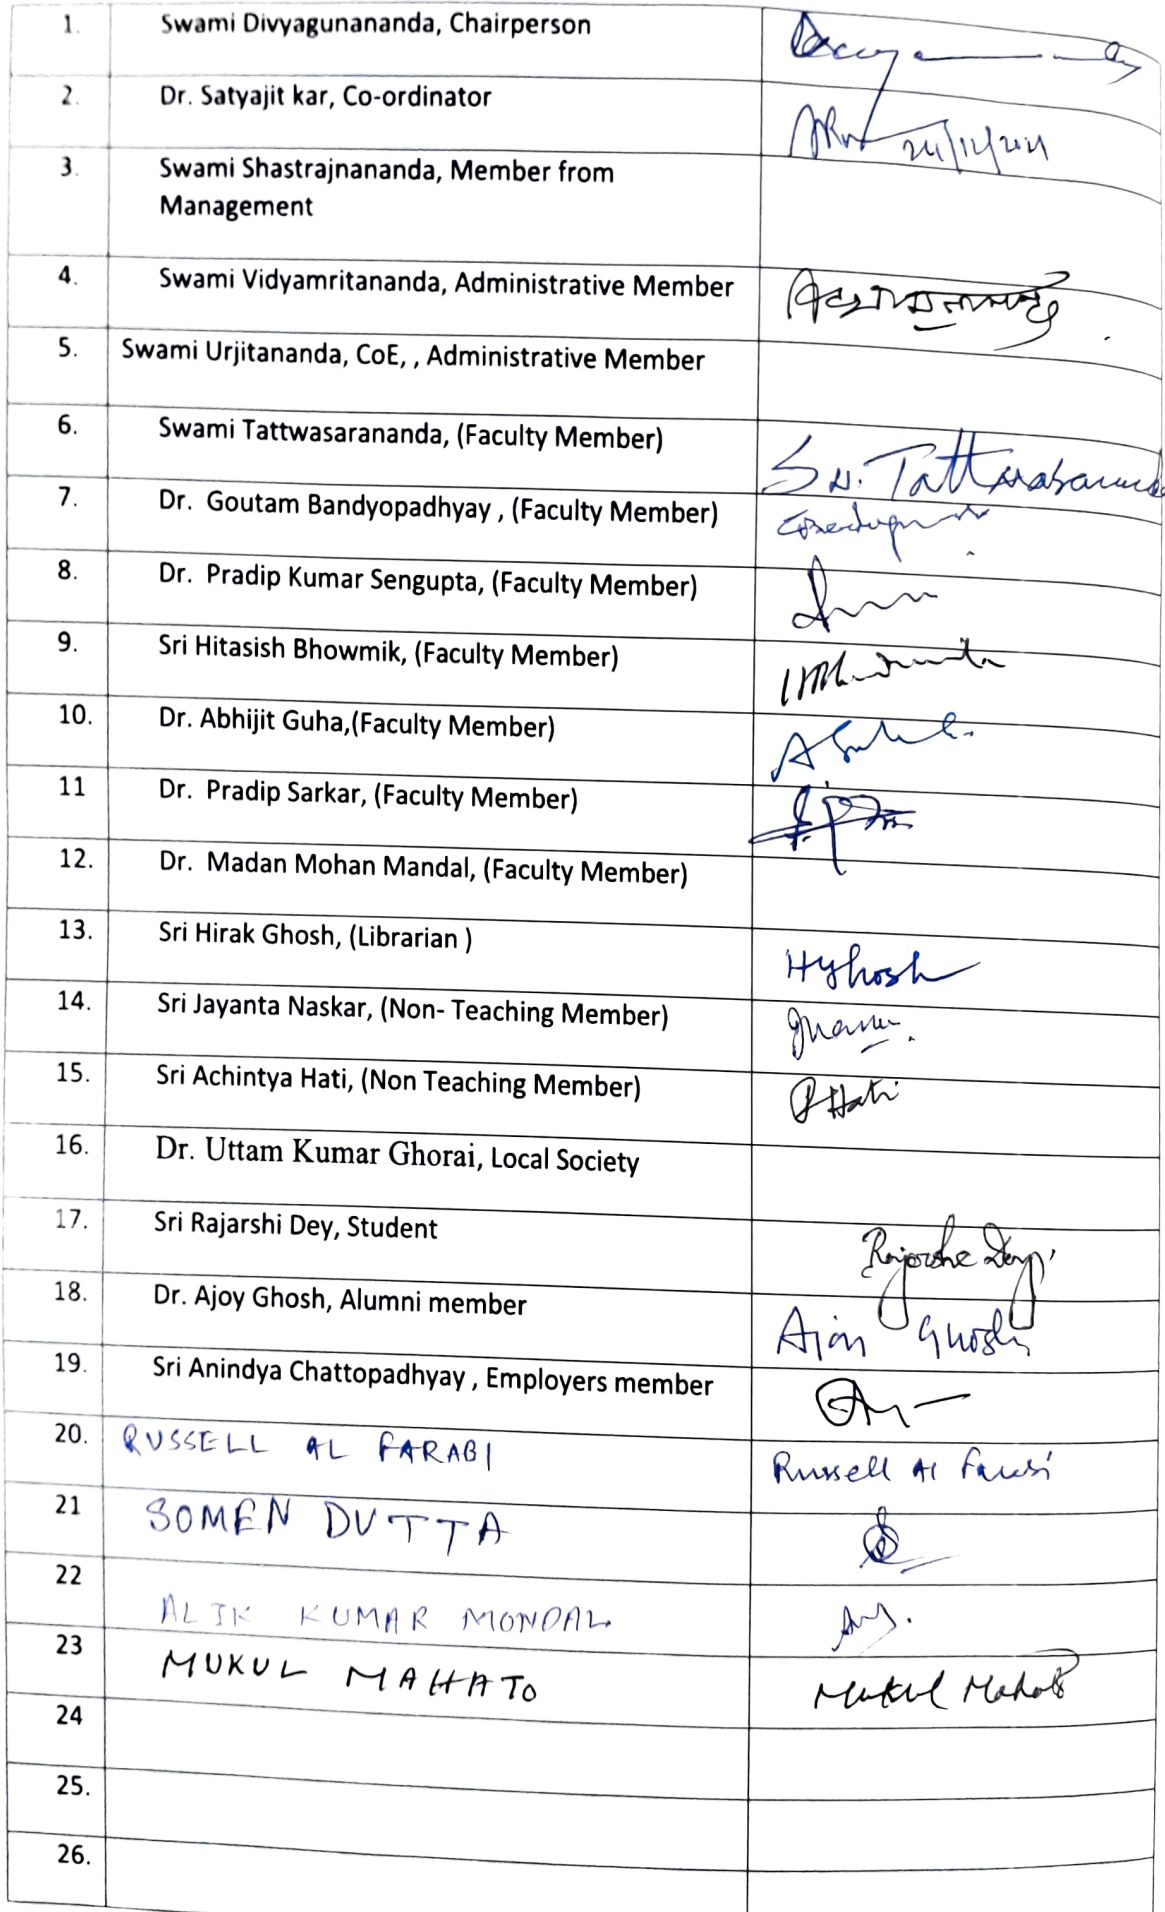 1. Swami Divyagunananda, Chairperson
2. Dr. Satyajit kar, Co-ordinator
24/12/2021
3. Swami Shastrajnananda, Member from
Management
4. Swami Vidyamritananda, Administrative Member
5. Swami Urjitananda, CoE, , Administrative Member
6. Swami Tattwasarananda, (Faculty Member)
7. Dr. Goutam Bandyopadhyay , (Faculty Member)
8. Dr. Pradip Kumar Sengupta, (Faculty Member)
9. Sri Hitasish Bhowmik, (Faculty Member)
10. Dr. Abhijit Guha,(Faculty Member) A Guha
11 Dr. Pradip Sarkar, (Faculty Member)
12. Dr. Madan Mohan Mandal, (Faculty Member)
13. Sri Hirak Ghosh, (Librarian ) HGhosh
14. Sri Jayanta Naskar, (Non- Teaching Member)
15. Sri Achintya Hati, (Non Teaching Member) Hati
16. Dr. Uttam Kumar Ghorai, Local Society
17. Sri Rajarshi Dey, Student Rajarshi Dey.
18. Dr. Ajoy Ghosh, Alumni member Ajoy Ghosh
19. Sri Anindya Chattopadhyay , Employers member
20. RUSSELL AL FARABI Russell Al Farabi
21 SOMEN DUTTA
22 ALIK KUMAR MONDAL
23 MUKUL MAHATO Mukul Mahato
24
25.
26.